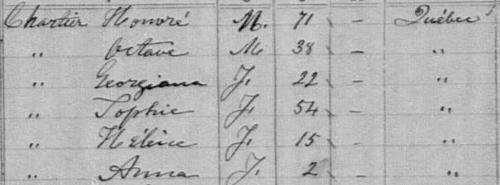 Chartier Honoré M. 71 — Québec
" Octave M. 38 — "
" Georgiana F. 22 — "
" Sophie F. 54 — "
" Hélène F. 15 — "
" Anna F. 2 — "